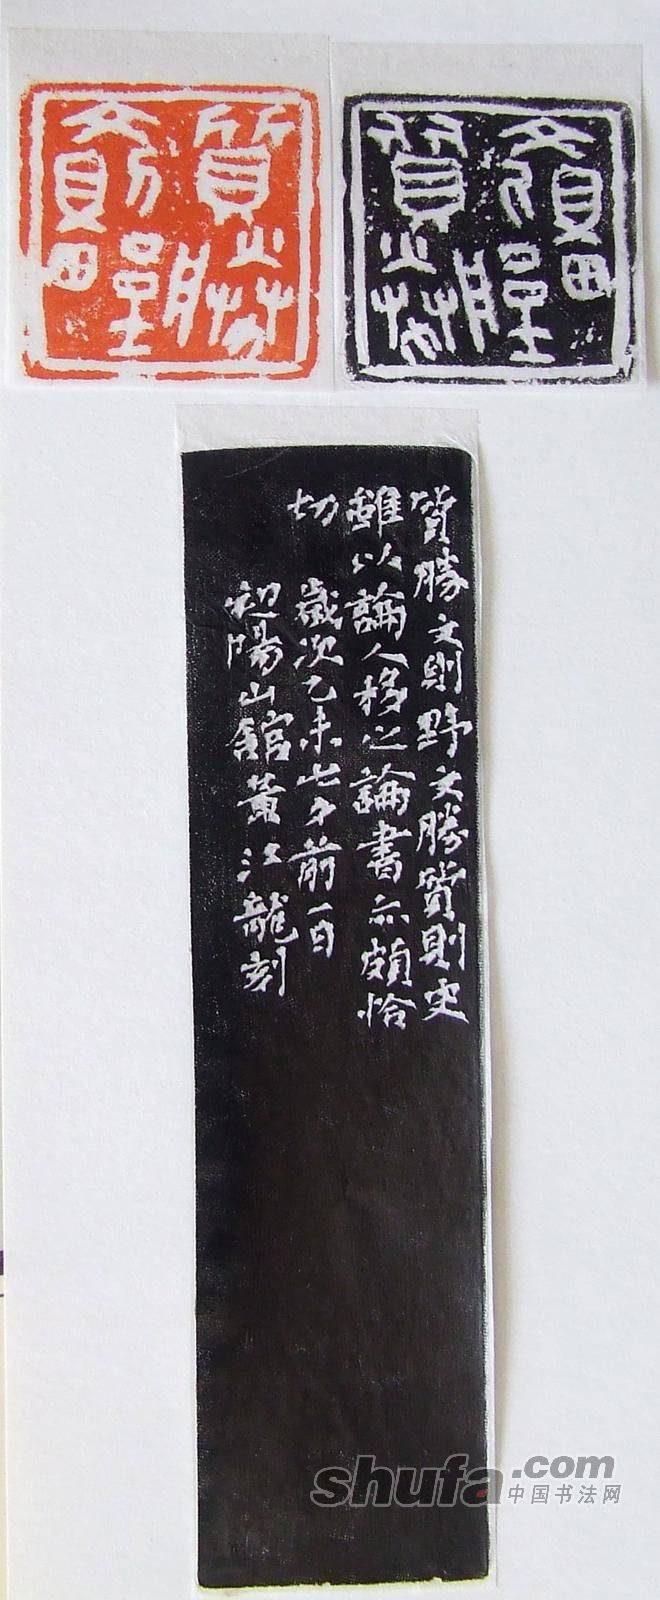 質勝文則野文勝質則史
雖以論人移之論書亦頗恰
切 歲次乙未七夕前一日
初陽山館黃江龍刻
shufa.com
中国书法网